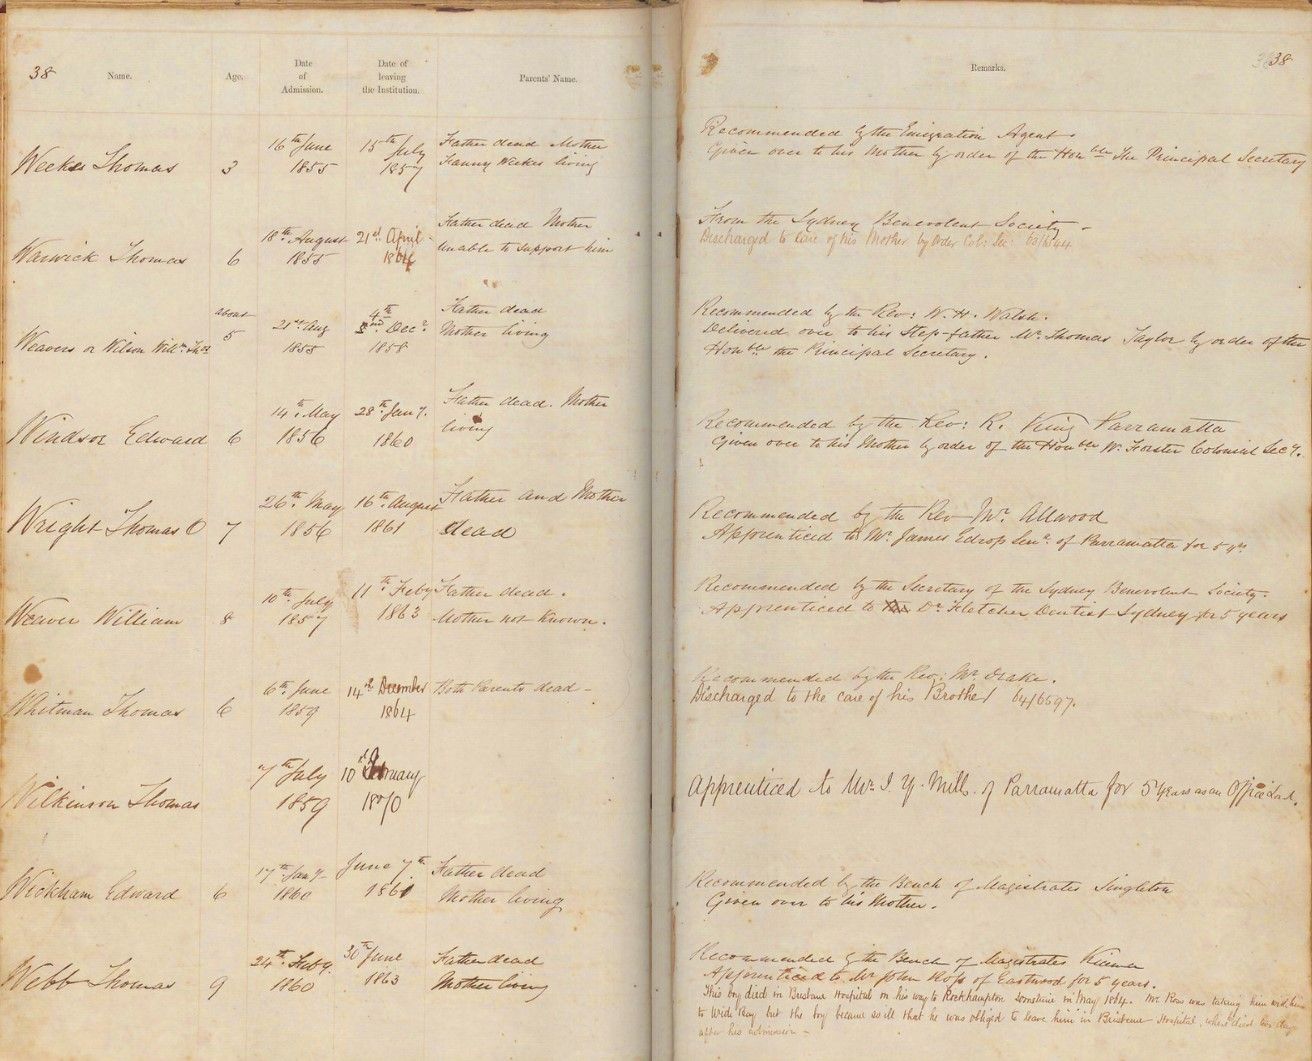 38
Name.
Age.
Date
of
Admission.
Date of
leaving
the Institution.
Parents' Name.
Remarks.
38
Weekes Thomas
3
16th June
1855
15th July
1857
Father dead Mother
Fanny Weekes living
Recommended by the Emigration Agent.
Given over to his Mother by order of the Honble The Principal Secretary
Warwick Thomas
6
18th August
1855
21st April
1864
Father dead Mother
unable to support him
From the Sydney Benevolent Society -
Discharged to care of his Mother by Order Col: Sec:
Weavers or Wilson Willm Thos
about
5
21st Aug
1855
4th
Decr
1858
Father dead
Mother living
Recommended by the Rev: W. H. Walsh.
Delivered over to his Step-father Mr. Thomas Taylor by order of the
Honble the Principal Secretary.
Windsor Edward
6
14th May
1856
28th Jany.
1860
Father dead. Mother
living
Recommended by the Rev: R. King Parramatta
Given over to his Mother by order of the Honble W. Forster Colonial Secy.
Wright Thomas O
7
26th May
1856
16th August
1861
Father and Mother
dead
Recommended by the Rev Mr. Allwood
Apprenticed to Mr. James Edrop Senr. of Parramatta for 5 yrs
Weaver William
8
10th July
1857
11th Feby
1863
Father dead.
Mother not Known.
Recommended by the Secretary of the Sydney Benevolent Society.
Apprenticed to Dr. Fletcher Dentist Sydney for 5 years
Whitman Thomas
6
6th June
1859
14th December
1864
Both Parents dead -
Recommended by the Rev: Mr Drake.
Discharged to the care of his Brother 64/6597.
Wilkinson Thomas
7th July
1859
10th February
1870
Apprenticed to Mr. J. Y. Mills of Parramatta for 5 years as an Office Lad.
Wickham Edward
6
17th Jany
1860
June 7th
1861
Father dead
Mother living
Recommended by the Bench of Magistrates Singleton
Given over to his Mother.
Webb Thomas
9
24th Feby.
1860
30th June
1863
Father dead
Mother living
Recommended by the Bench of Magistrates Kiama
Apprenticed to Mr John Ross of Eastwood for 5 years.
This boy died in Brisbane Hospital on his way to Rockhampton sometime in May 1864. Mr. Ross was taking him with him
to Wide Bay but the boy became so ill that he was obliged to leave him in Brisbane Hospital, where died two days
after his admission -